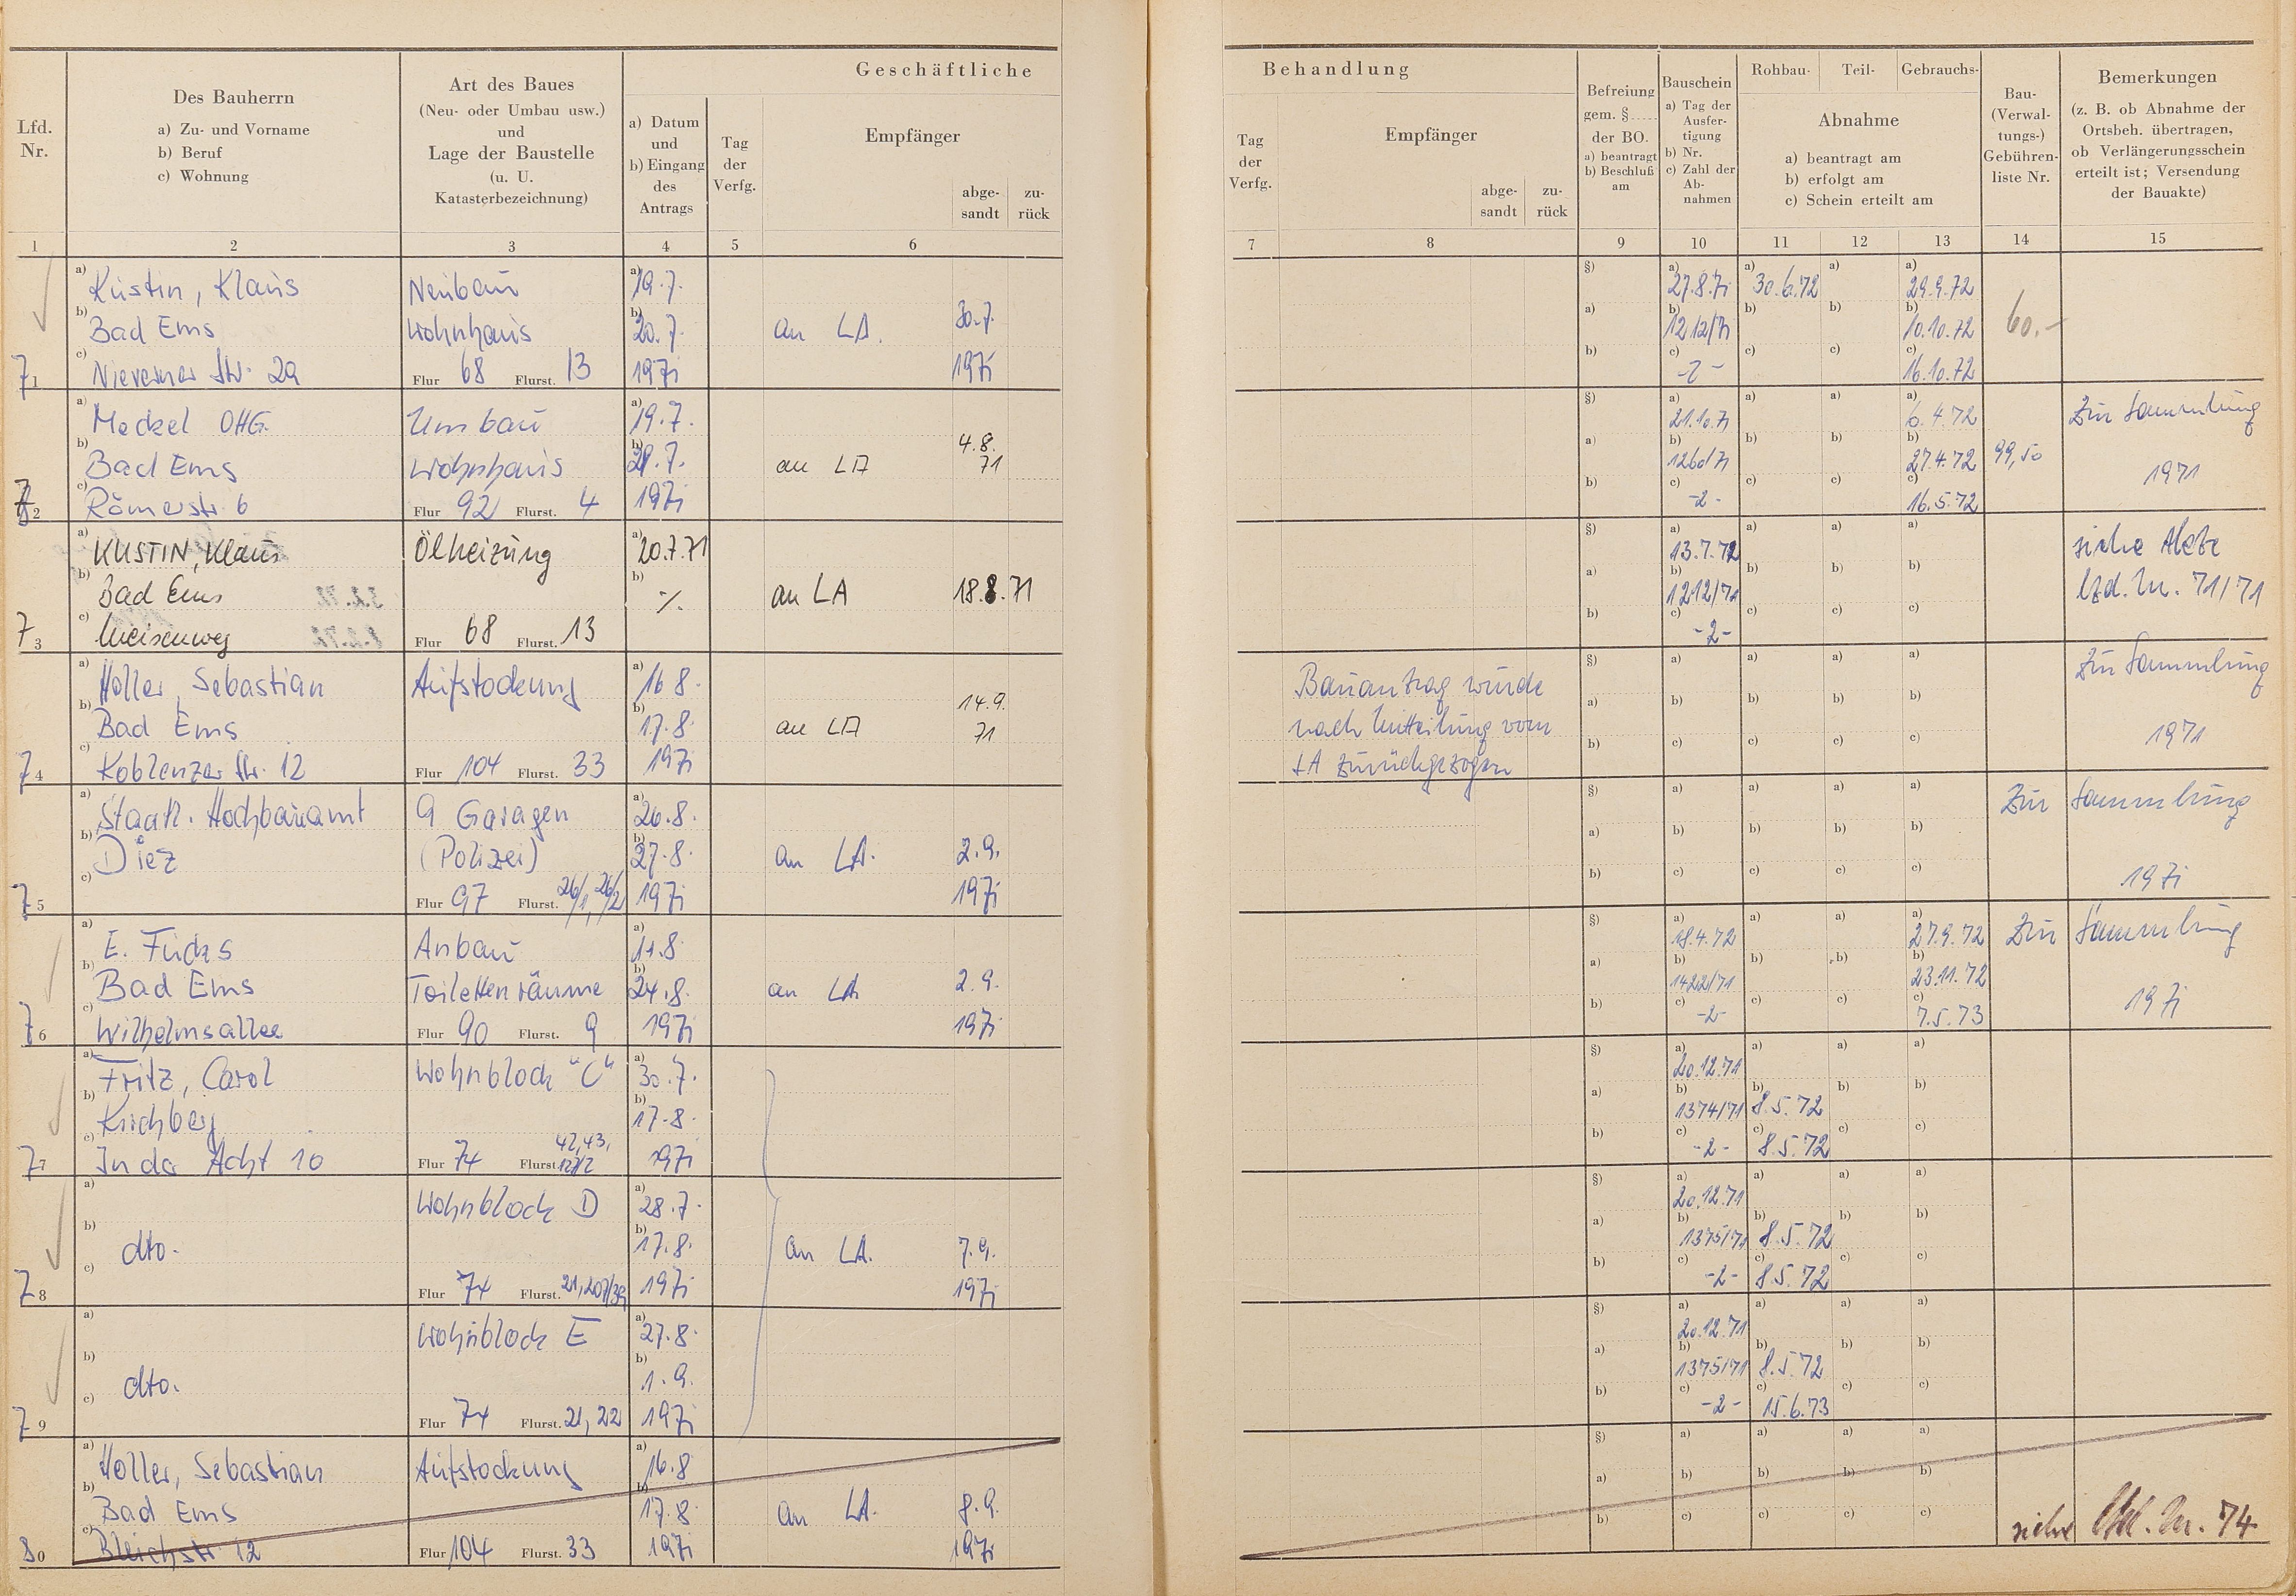 Geschäftliche
Lfd. Nr.
Des Bauherrn
a) Zu- und Vorname
b) Beruf
c) Wohnung
Art des Baues
(Neu- oder Umbau usw.)
und
Lage der Baustelle
(u. U.
Katasterbezeichnung)
a) Datum
und
b) Eingang
des
Antrags
Tag
der
Verfg.
Empfänger
abge-
sandt
zu-
rück
1 2 3 4 5 6
a) Küstin, Klaus Neubau a) 19.7.
b) Bad Ems Wohnhaus b) 20.7. an LA. 30.7.
71 c) Nieverner Str. 29 Flur 68 Flurst. 13 1971 1971
a) Meckel OHG. Umbau a) 19.7.
b) Bad Ems Wohnhaus b) 29.7. an LA 4.8. 71
72 c) Römerstr. 6 Flur 92 Flurst. 4 1971
a) KÜSTIN, Klaus Ölheizung a) 20.7.71
b) Bad Ems b) ./. an LA 18.8.71
73 c) Meisenweg Flur 68 Flurst. 13
a) Holler, Sebastian Aufstockung a) 16 8.
b) Bad Ems b) 17.8. an LA 14.9. 71
74 c) Koblenzer Str. 12 Flur 104 Flurst. 33 1971
a) Staatl. Hochbauamt 9 Garagen a) 26.8.
b) Diez (Polizei) b) 27.8. an LA. 2.9.
75 c) Flur 97 Flurst. 26/1, 26/2 1971 1971
a) E. Fuchs Anbau a) 11.8
b) Bad Ems Toilettenräume b) 24.8. an LA 2.9.
76 c) Wilhelmsallee Flur 90 Flurst. 9 1971 1971
a) Fritz, Carol Wohnblock "C" a) 30.7.
b) Kirchberg b) 17.8.
77 c) In der Acht 10 Flur 74 Flurst. 42, 43, 1971
a) Wohnblock D a) 28.7.
b) dto. b) 17.8. an LA. 7.9.
78 c) Flur 74 Flurst. 21, 207/39 1971 1971
a) Wohnblock E a) 27.8.
b) dto. b) 1.9.
79 c) Flur 74 Flurst. 21, 22 1971
a) Holler, Sebastian Aufstockung a) 16.8
b) Bad Ems b) 17.8. an LA. 8.9.
80 c) Bleichstr. 12 Flur 104 Flurst. 33 1971 1971
Behandlung
Tag
der
Verfg.
Empfänger
abge-
sandt
zu-
rück
Befreiung
gem. §......
der BO.
a) beantragt
b) Beschluß
am
Bauschein
a) Tag der
Ausfer-
tigung
b) Nr.
c) Zahl der
Ab-
nahmen
Rohbau- Teil- Gebrauchs-
Abnahme
a) beantragt am
b) erfolgt am
c) Schein erteilt am
Bau-
(Verwal-
tungs-)
Gebühren-
liste Nr.
Bemerkungen
(z. B. ob Abnahme der
Ortsbeh. übertragen,
ob Verlängerungsschein
erteilt ist; Versendung
der Bauakte)
7 8 9 10 11 12 13 14 15
§) a) 27.8.71 a) 30.6.72 a) a) 29.9.72
a) b) 1212/71 b) b) b) 10.10.72 60.-
b) c) -2- c) c) c) 16.10.72
§) a) 21.10.71 a) a) a) 6.4.72 Zur Sammlung
a) b) 1260/71 b) b) b) 27.4.72 99,50
b) c) -2- c) c) c) 16.5.72 1971
§) a) 13.7.72 a) a) a) siehe Akte
a) b) 1212/71 b) b) b) lfd. Nr. 71/71
b) c) -2- c) c) c)
Bauantrag wurde §) a) a) a) a) Zur Sammlung
nach Mitteilung vom a) b) b) b) b)
LA zurückgezogen b) c) c) c) c) 1971
§) a) a) a) a) Zur Sammlung
a) b) b) b) b)
b) c) c) c) c) 1971
§) a) 18.4.72 a) a) a) 27.9.72 Zur Sammlung
a) b) 1422/71 b) b) b) 23.11.72
b) c) -2- c) c) c) 7.5.73 1971
§) a) 20.12.71 a) a) a)
a) b) 1374/71 b) 8.5.72 b) b)
b) c) -2- c) 8.5.72 c) c)
§) a) 20.12.71 a) a) a)
a) b) 1375/71 b) 8.5.72 b) b)
b) c) -2- c) 8.5.72 c) c)
§) a) 20.12.71 a) a) a)
a) b) 1375/71 b) 8.5.72 b) b)
b) c) -2- c) 15.6.73 c) c)
§) a) a) a) a)
a) b) b) b) b)
b) c) c) c) c) siehe lfd. Nr. 74